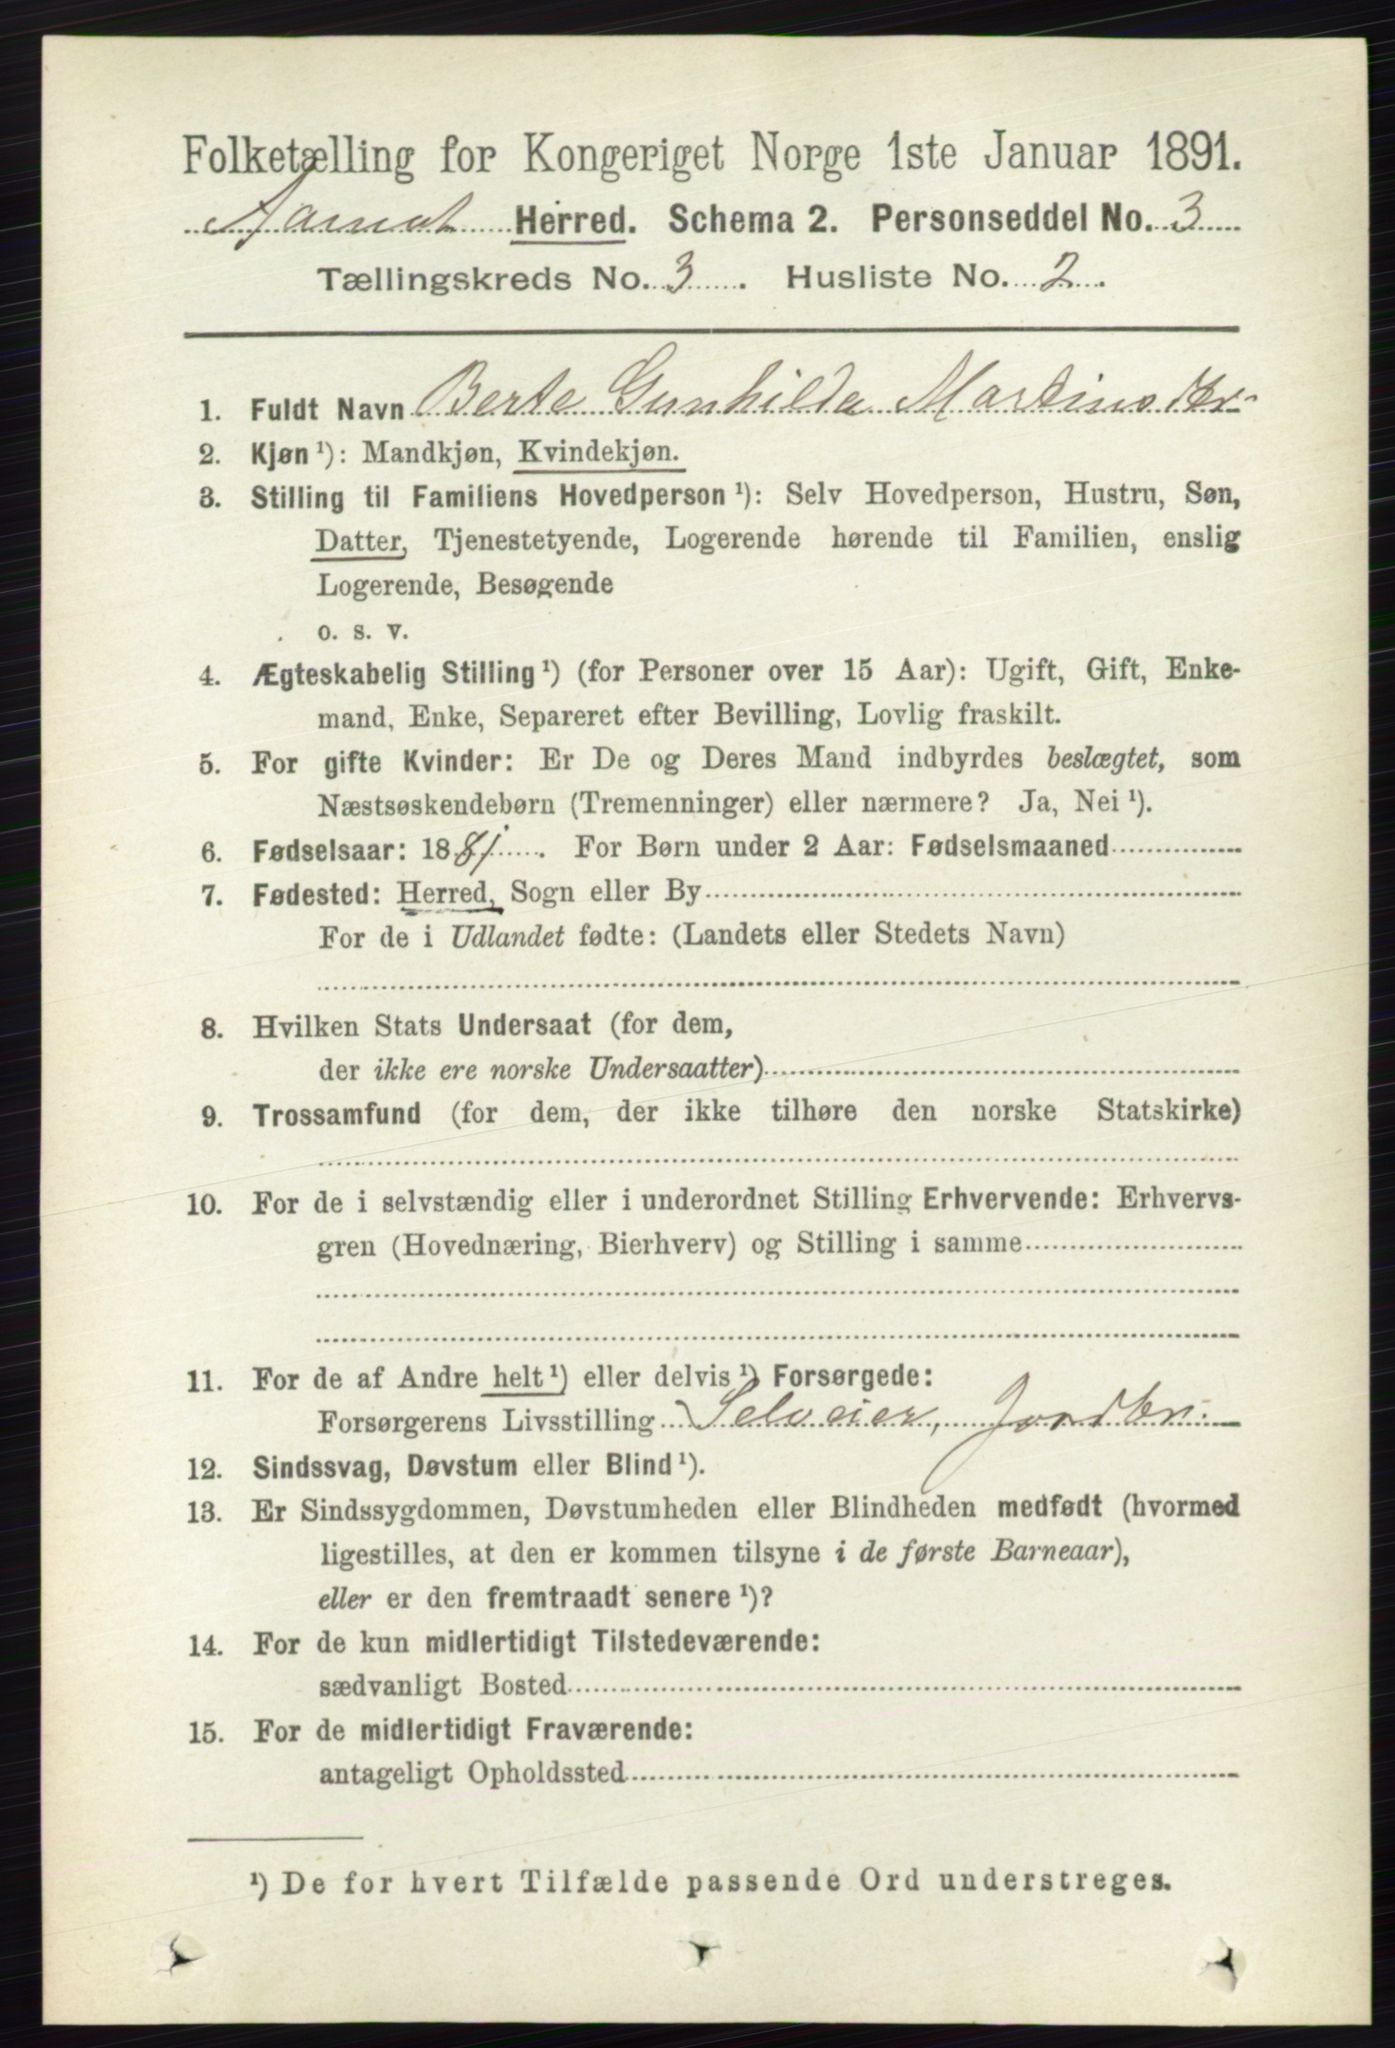 Folketælling for Kongeriget Norge 1ste Januar 1891.
Aamot Herred. Schema 2. Personseddel No. 3
Tællingskreds No. 3. Husliste No. 2.
1. Fuldt Navn Berte Gunhilda Martinsdtr
2. Kjøn ¹): Mandkjøn, Kvindekjøn.
3. Stilling til Familiens Hovedperson ¹): Selv Hovedperson, Hustru, Søn,
Datter, Tjenestetyende, Logerende hørende til Familien, enslig
Logerende, Besøgende
o. s. v.
4. Ægteskabelig Stilling ¹) (for Personer over 15 Aar): Ugift, Gift, Enke-
mand, Enke, Separeret efter Bevilling, Lovlig fraskilt.
5. For gifte Kvinder: Er De og Deres Mand indbyrdes beslægtet, som
Næstsøskendebørn (Tremenninger) eller nærmere? Ja, Nei ¹).
6. Fødselsaar: 1881. For Børn under 2 Aar: Fødselsmaaned
7. Fødested: Herred, Sogn eller By
For de i Udlandet fødte: (Landets eller Stedets Navn)
8. Hvilken Stats Undersaat (for dem,
der ikke ere norske Undersaatter)
9. Trossamfund (for dem, der ikke tilhøre den norske Statskirke)
10. For de i selvstændig eller i underordnet Stilling Erhvervende: Erhvervs-
gren (Hovednæring, Bierhverv) og Stilling i samme
11. For de af Andre helt ¹) eller delvis ¹) Forsørgede:
Forsørgerens Livsstilling Selveier, Jordbr.
12. Sindssvag, Døvstum eller Blind ¹).
13. Er Sindssygdommen, Døvstumheden eller Blindheden medfødt (hvormed
ligestilles, at den er kommen tilsyne i de første Barneaar),
eller er den fremtraadt senere ¹)?
14. For de kun midlertidigt Tilstedeværende:
sædvanligt Bosted
15. For de midlertidigt Fraværende:
antageligt Opholdssted
¹) De for hvert Tilfælde passende Ord understreges.